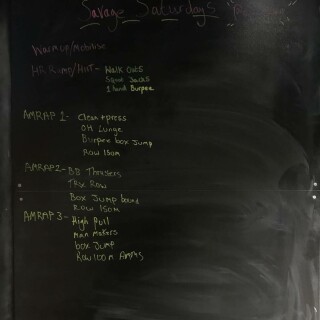 Savage Saturdays
Warmup/Mobilise
HR Ramp/HIIT- Walk Outs
Squat Jacks
1 hand Burpee
AMRAP 1- Clean + press
OH Lunge
Burpee box Jump
Row 150m
AMRAP 2- BB Thrusters
TRX Row
Box Jump bound
Row 150m
AMRAP 3- High Pull
Man Makers
box Jump
Row 100m